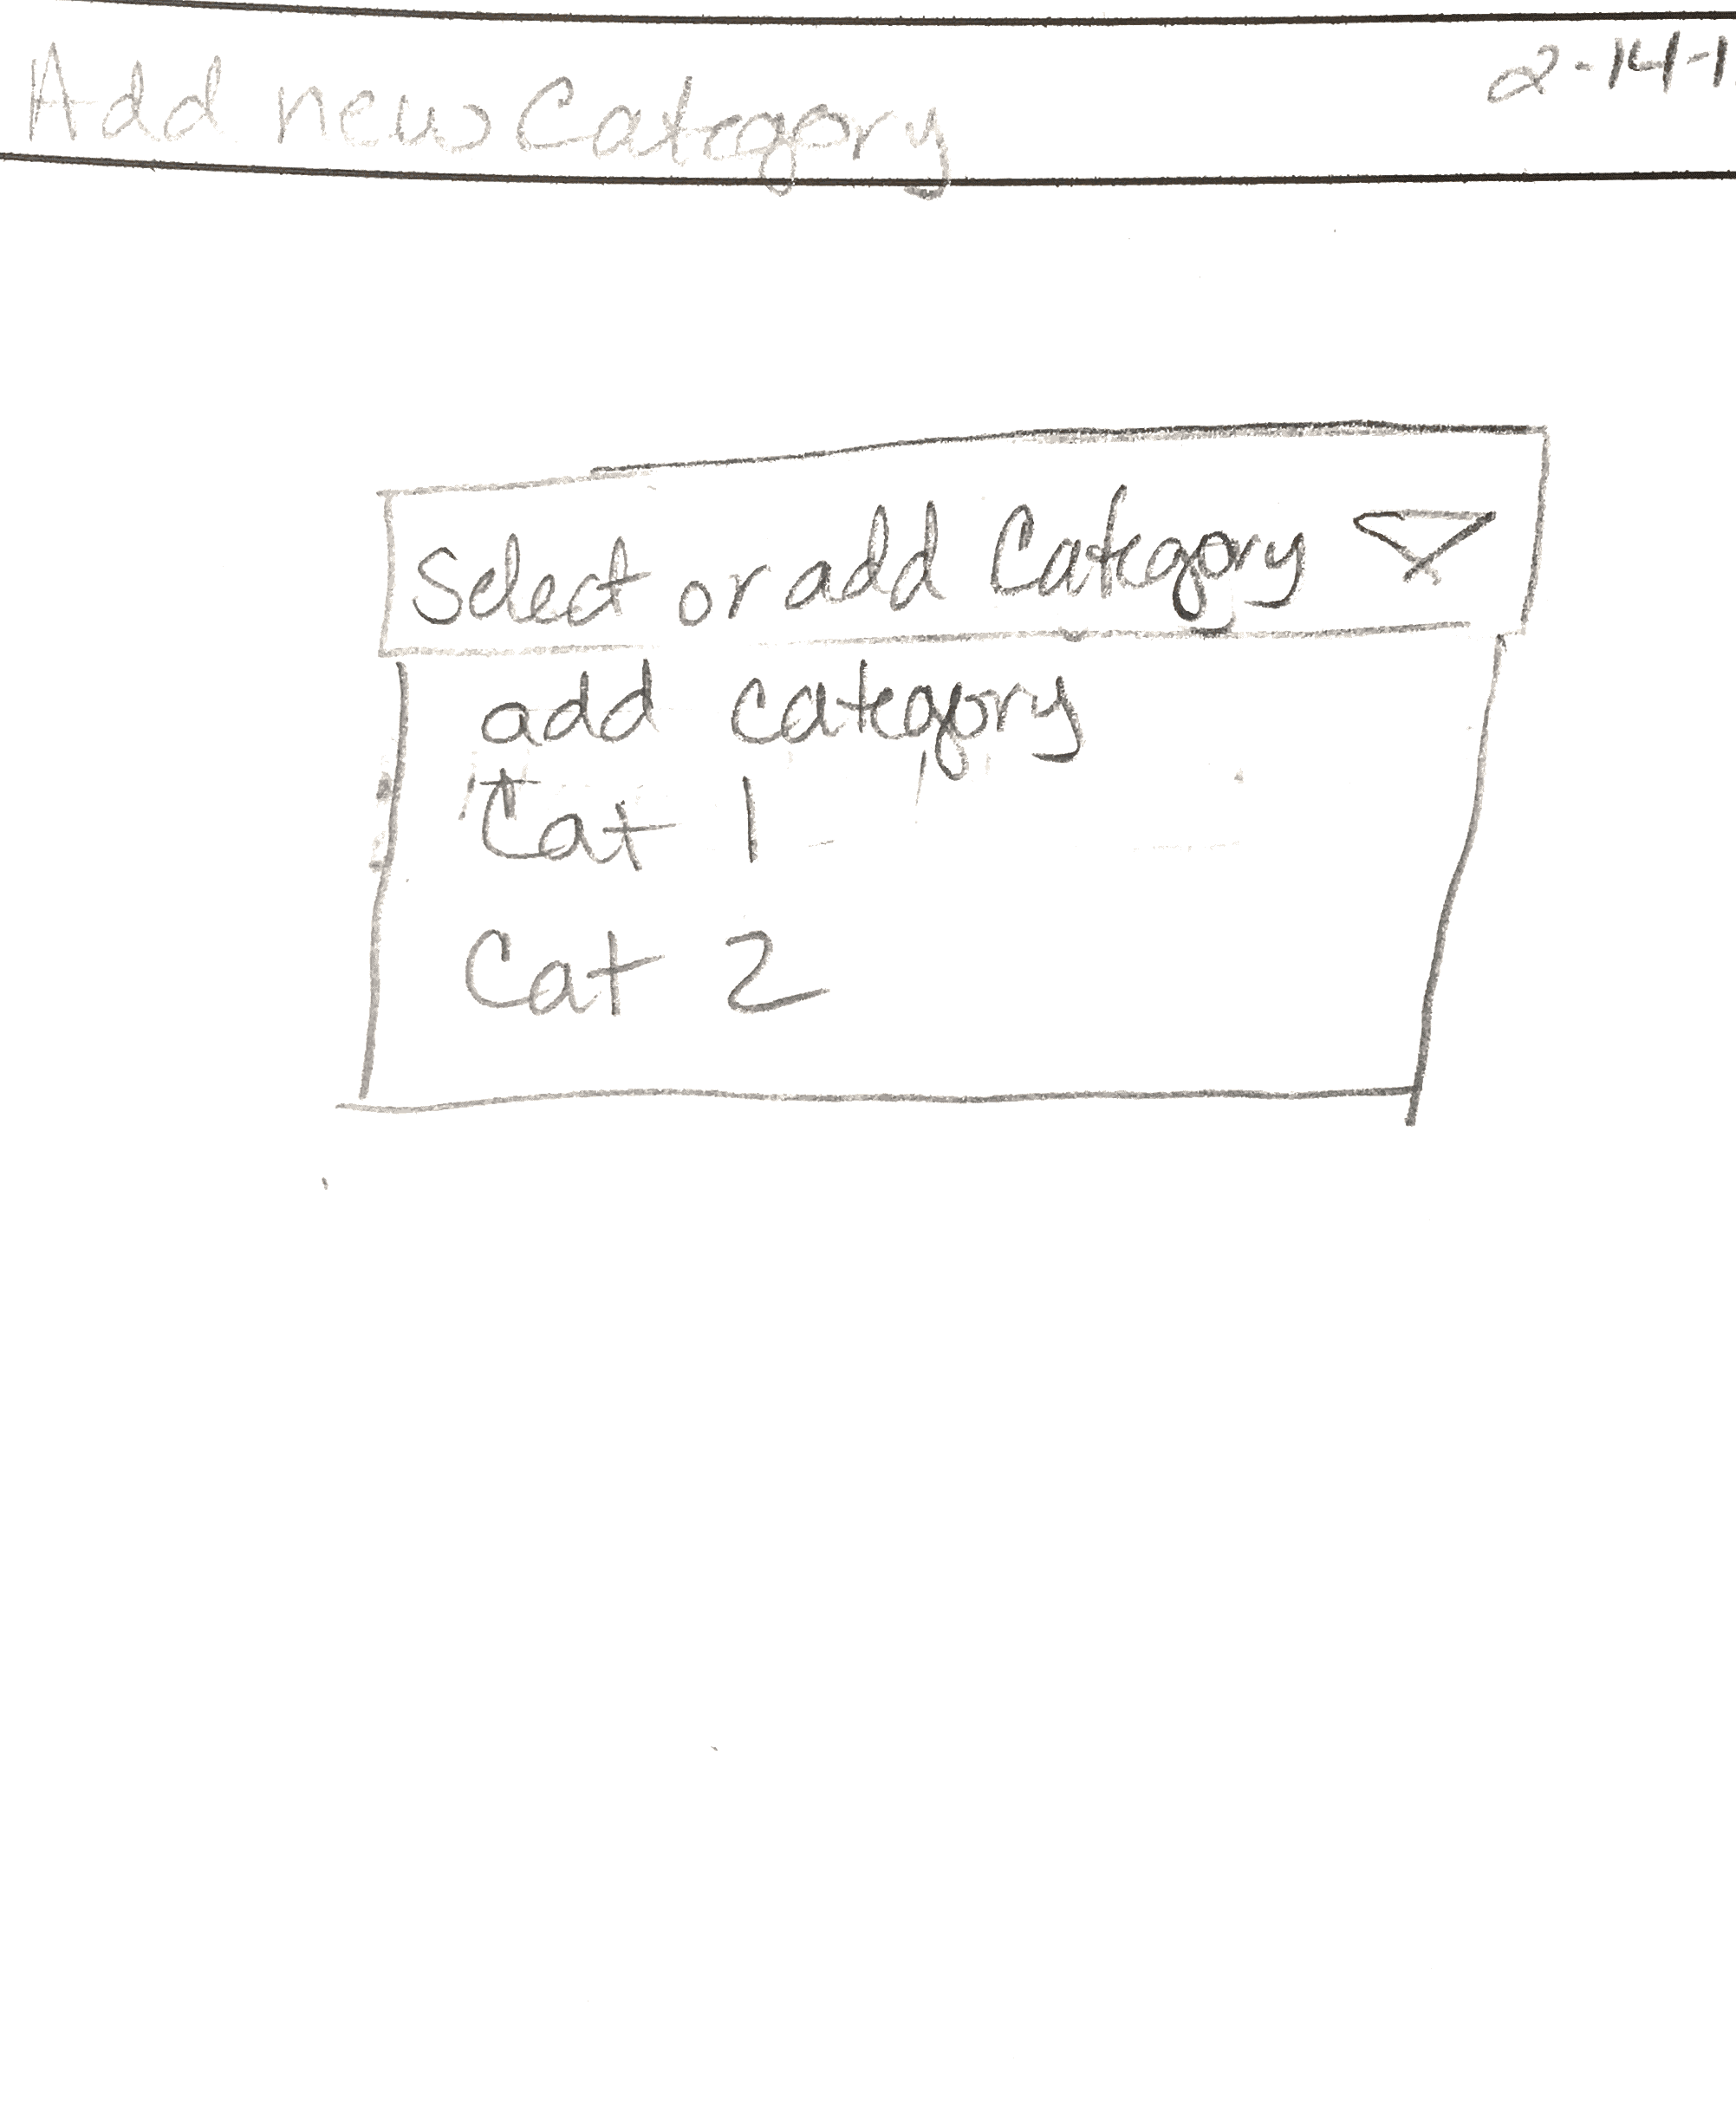 Add new Category
2-14-1
Select or add Category
add category
Cat 1
Cat 2